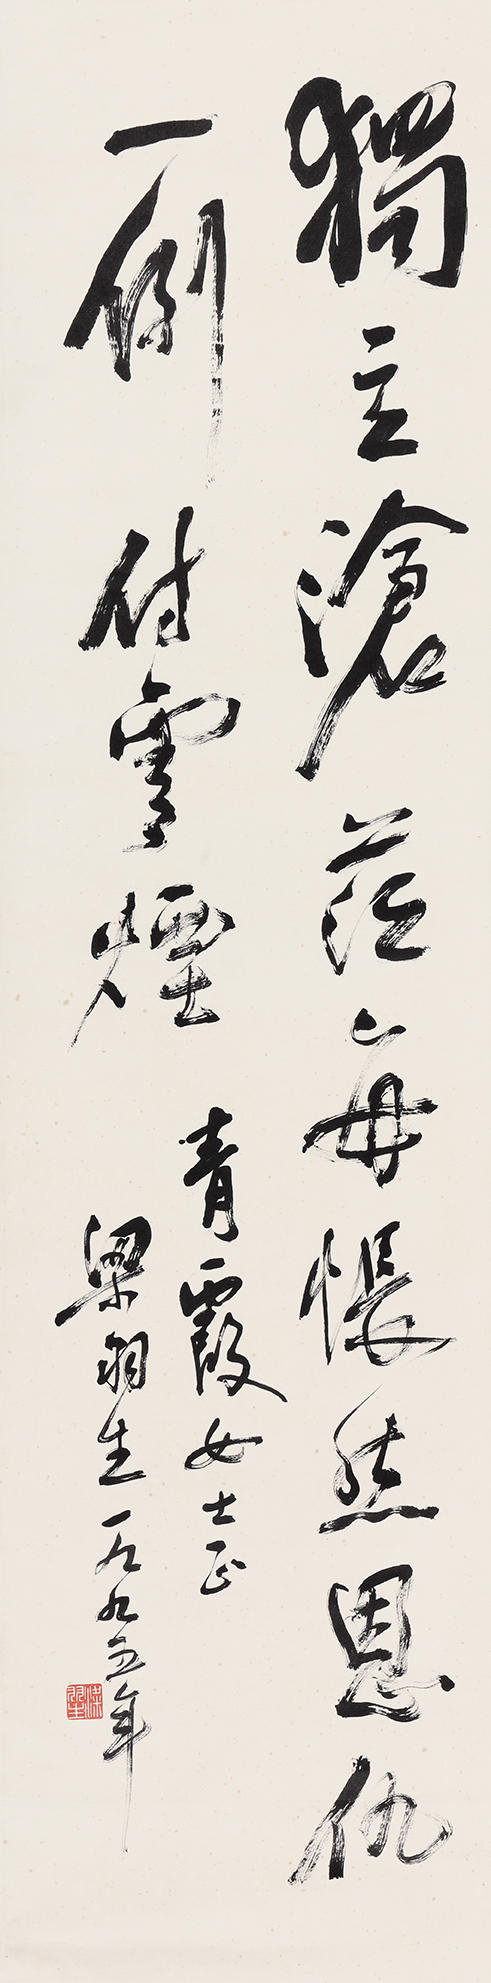 獨立滄茫每悵然恩仇
一例付雲煙
青霞女士正
梁羽生一九九五年
梁羽生